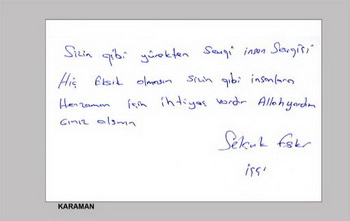 Sizin gibi yürekten Sevgi insan Sevgisi
Hiç Eksik olmasın sizin gibi insanlara
Herzaman için ihtiyaç vardır Allahyardım
cınız olsun
Selçuk
işçi
KARAMAN